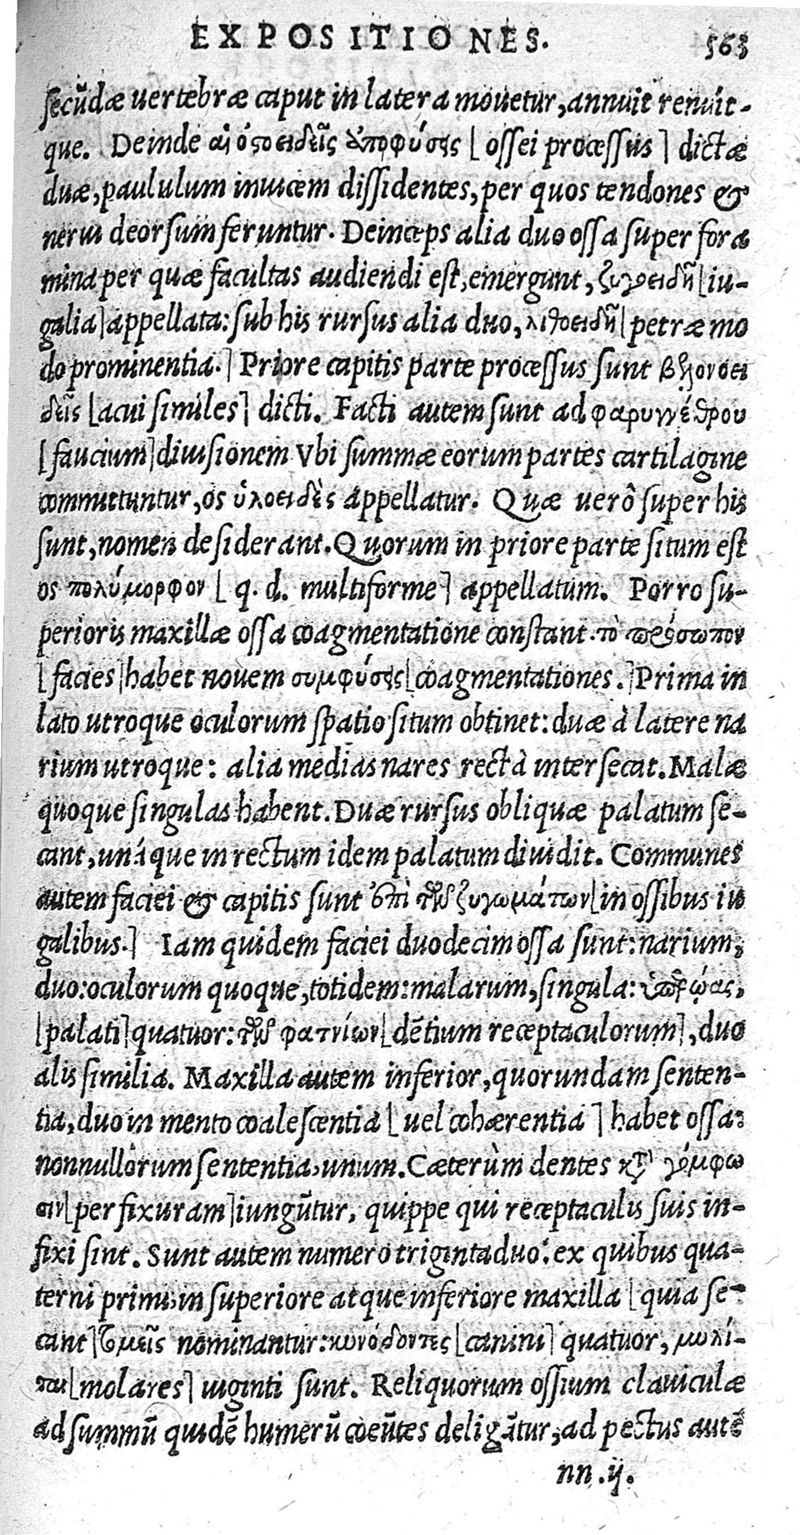 EXPOSITIONES. 563
secũdæ uertebræ caput in latera mouetur, annuit renuit-
que. Deinde αἱ ὀστοειδεῖς ἀποφύσεις [ossei processus] dictæ
duæ, paululum inuicem dissidentes, per quos tendones &
nerui deorsum feruntur. Deinceps alia duo ossa super fora
mina per quæ facultas audiendi est, emergunt, ζυγοειδῆ [iu-
galia] appellata: sub his rursus alia duo, λιθοειδῆ [petræ mo
do prominentia.] Priore capitis parte processus sunt βελονοει
δεῖς [acui similes] dicti. Facti autem sunt ad φαρυγγέθρου
[faucium] diuisionem Vbi summæ eorum partes cartilagine
committuntur, os ὑλοειδὲς appellatur. Quæ uerò super his
sunt, nomen desiderant. Quorum in priore parte situm est
os πολύμορφον [q. d. multiforme] appellatum. Porro su-
perioris maxillæ ossa coagmentatione constant. τὸ πρόσωπον
[facies] habet nouem συμφύσεις [coagmentationes.] Prima in
lato utroque oculorum spatio situm obtinet: duæ à latere na
rium utroque: alia medias nares rectà intersecat. Malæ
quoque singulas habent. Duæ rursus obliquæ palatum se-
cant, unáque in rectum idem palatum diuidit. Communes
autem faciei & capitis sunt ἐπὶ τῶν ζυγωμάτων [in ossibus iu
galibus.] Iam quidem faciei duodecim ossa sunt: narium,
duo: oculorum quoque, totidem: malarum, singula: ὑπερῴας,
[palati] quatuor: τῶν φατνίων [dẽtium receptaculorum], duo
alis similia. Maxilla autem inferior, quorundam senten-
tia, duo in mento coalescentia [uel cohærentia] habet ossa:
nonnullorum sententia, unum. Cæterùm dentes κατὰ γόμφω
σιν [per fixuram] iungũtur, quippe qui receptaculis suis in-
fixi sint. Sunt autem numero triginta duo: ex quibus qua-
terni primi, in superiore atque inferiore maxilla [quia se-
cant] τομεῖς nominantur: κυνόδοντες [canini] quatuor, μυλί-
ται [molares] uiginti sunt. Reliquorum ossium clauiculæ
ad summũ quidẽ humerũ coeũtes deligãtur, ad pectus autẽ
nn.ij.